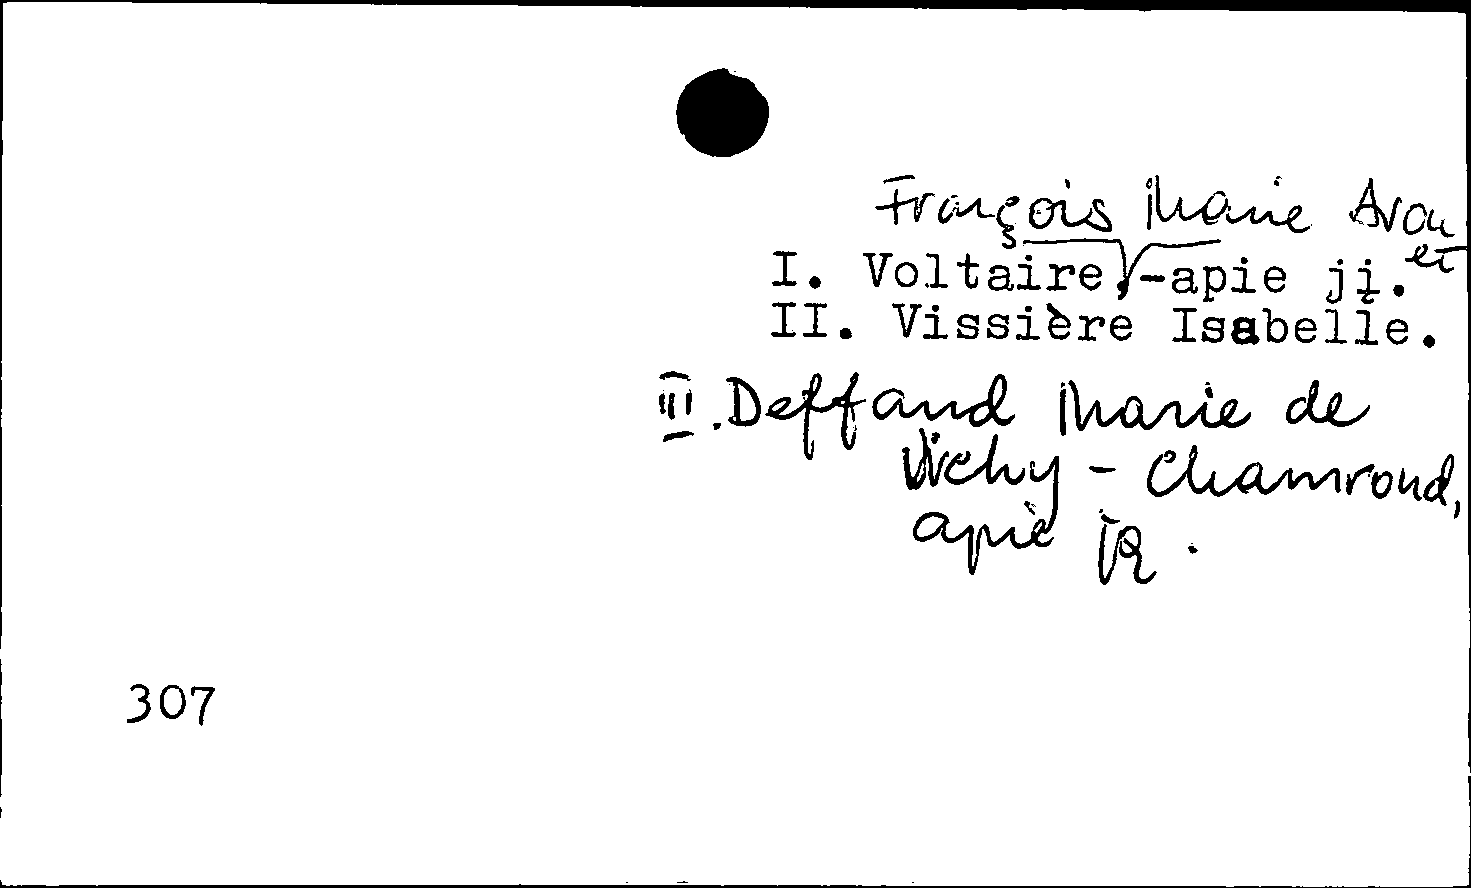 François Marie Arou
et
I. Voltaire,-apie jį.
II. Vissière Isabelle.
III. Deffand Marie de
Vichy - Chamrond,
apie ją.
307